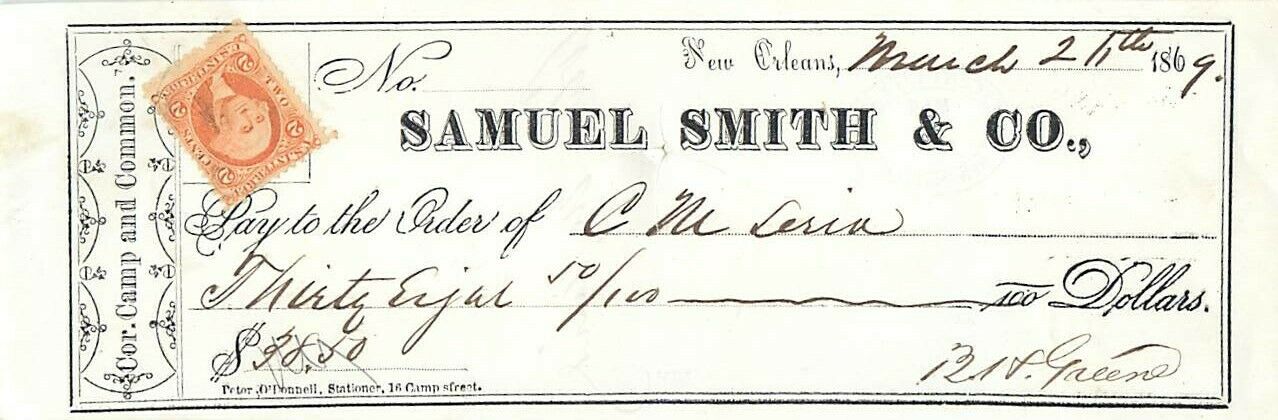 Cor. Camp and Common.
U.S. INTER. REV.
TWO CENTS
2 2 2 2
No.
New Orleans, March 2 11th 1869.
SAMUEL SMITH & CO.,
Pay to the Order of C M
Thirty Eight 50/100 100 Dollars.
$ 38.50
Peter O'Donnell, Stationer, 16 Camp street.
Greene